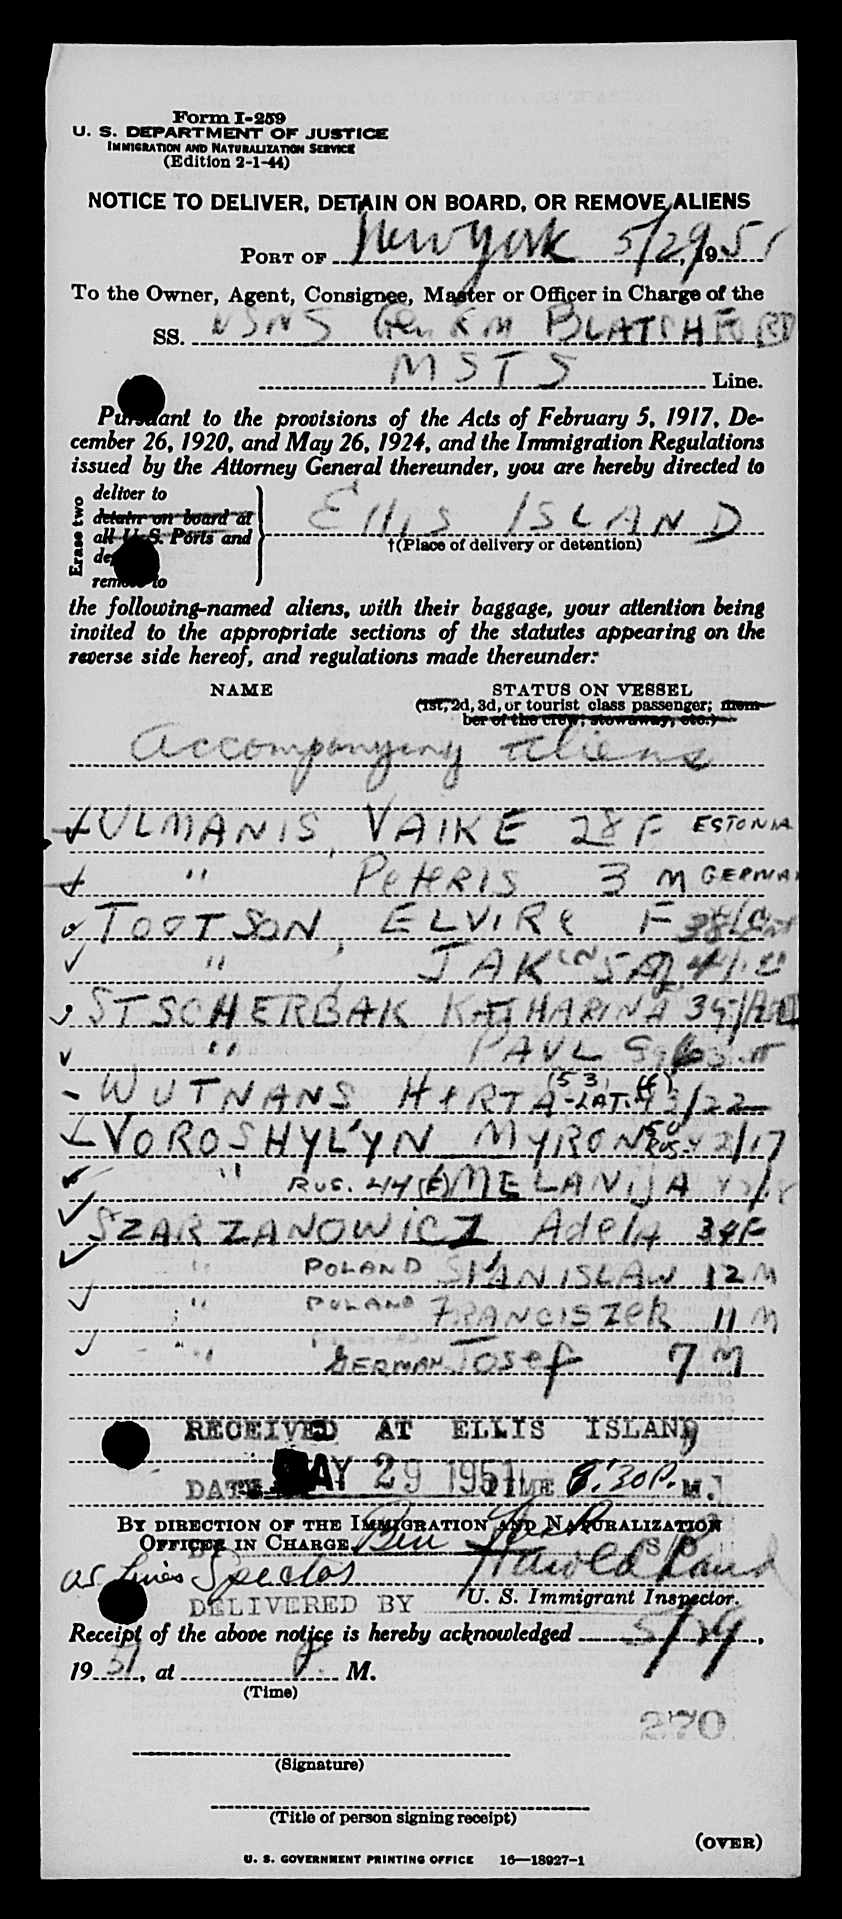 Form I-259
U. S. DEPARTMENT OF JUSTICE
IMMIGRATION AND NATURALIZATION SERVICE
(Edition 2-1-44)
NOTICE TO DELIVER, DETAIN ON BOARD, OR REMOVE ALIENS
PORT OF New York 5/29, 1951
To the Owner, Agent, Consignee, Master or Officer in Charge of the
SS. USNS Gen R M BLATCHFORD
MSTS Line.
Pursuant to the provisions of the Acts of February 5, 1917, De-
cember 26, 1920, and May 26, 1924, and the Immigration Regulations
issued by the Attorney General thereunder, you are hereby directed to
Erase two
deliver to
detain on board at
all U. S. Ports and
remove to
ELLIS ISLAND
†(Place of delivery or detention)
the following-named aliens, with their baggage, your attention being
invited to the appropriate sections of the statutes appearing on the
reverse side hereof, and regulations made thereunder:
NAME STATUS ON VESSEL
(1st, 2d, 3d, or tourist class passenger; mem-
ber of the crew; stowaway, etc.)
Accompanying aliens
ULMANIS, VAIKE 28 F ESTONIA
" PETERIS 3 M GERMAN
TOOTSON, ELVIRE F 38
" JAK
STSCHERBAK KATHARINA
" PAUL
WUTNANS HERTA (53) (F) -LAT.
VOROSHYLYN MYRON
" RUS. 44 (F) MELANIJA
SZARZANOWICZ Adela 34 F
" POLAND STANISLAW 12 M
" POLAND FRANCISZEK 11 M
" GERMAN Josef 7 M
RECEIVED AT ELLIS ISLAND
DATE MAY 29 1951 TIME 8:30 P. M.
BY DIRECTION OF THE IMMIGRATION AND NATURALIZATION
OFFICER IN CHARGE Ben
Harold
U. S. Immigrant Inspector.
DELIVERED BY
Receipt of the above notice is hereby acknowledged 5/29,
1951, at M.
(Time)
270
(Signature)
(Title of person signing receipt)
(OVER)
U. S. GOVERNMENT PRINTING OFFICE 16—18927-1